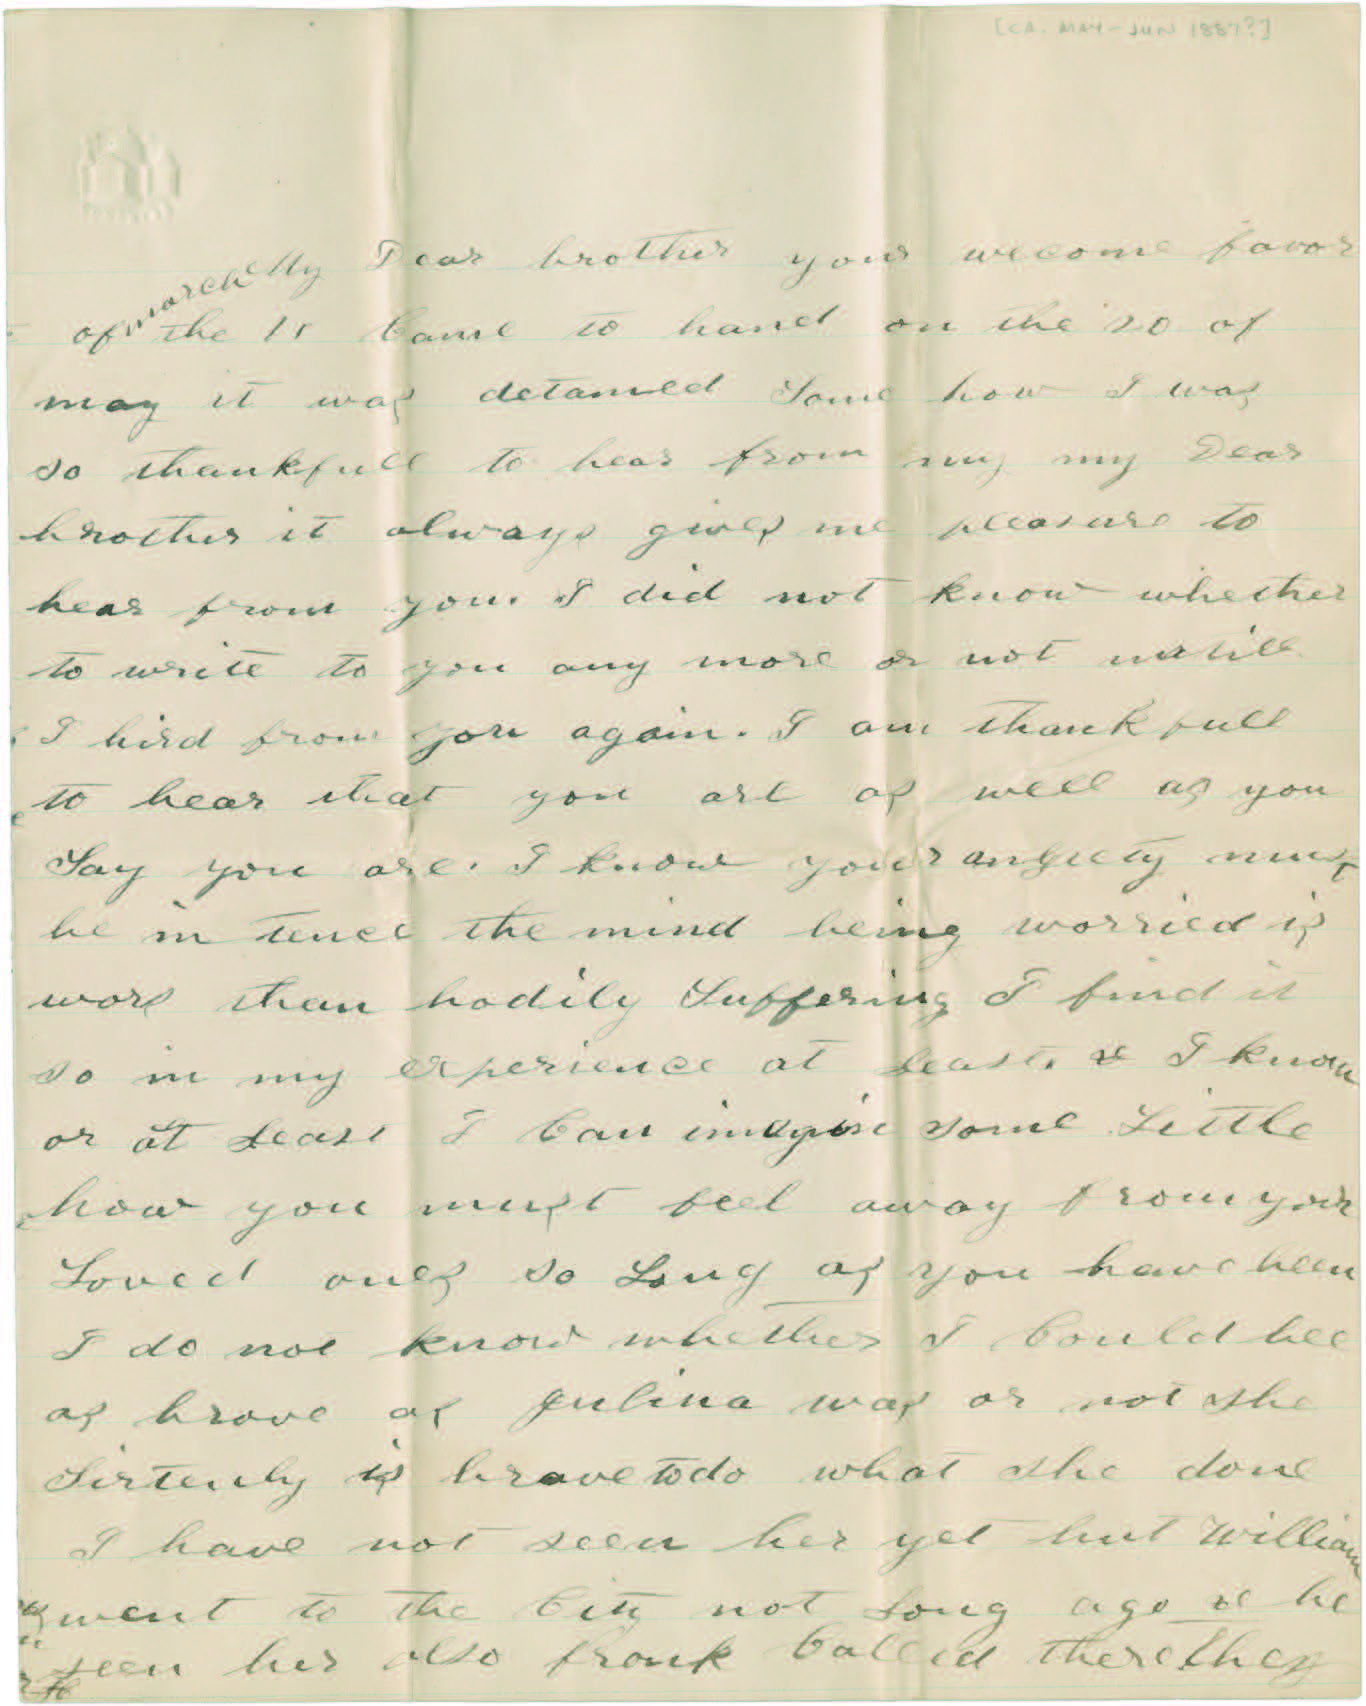 [CA. MAY-JUN 1887?]
My Dear brother your wecome favor
of march the 18 Came to hand on the 20 of
may it was detained Some how I was
so thankfull to hear from my my Dear
brother it always gives me pleasure to
hear from you. I did not know whether
to write to you any more or not untill
I hird from you again. I am thankfull
to hear that you are as well as you
Say you are. I know your anxiety must
be in tence the mind being worried is
wors than bodily Suffering I find it
so in my experience at Least. & I know
or at Least I Can imagin some Little
how you must feel away from your
Loved ones so Long as you have been
I do not know whether I Could bee
as brave as Julina was or not she
Sirtenly is brave to do what she done
I have not seen her yet but William
went to the City not Long ago & he
seen her also frank Called there they